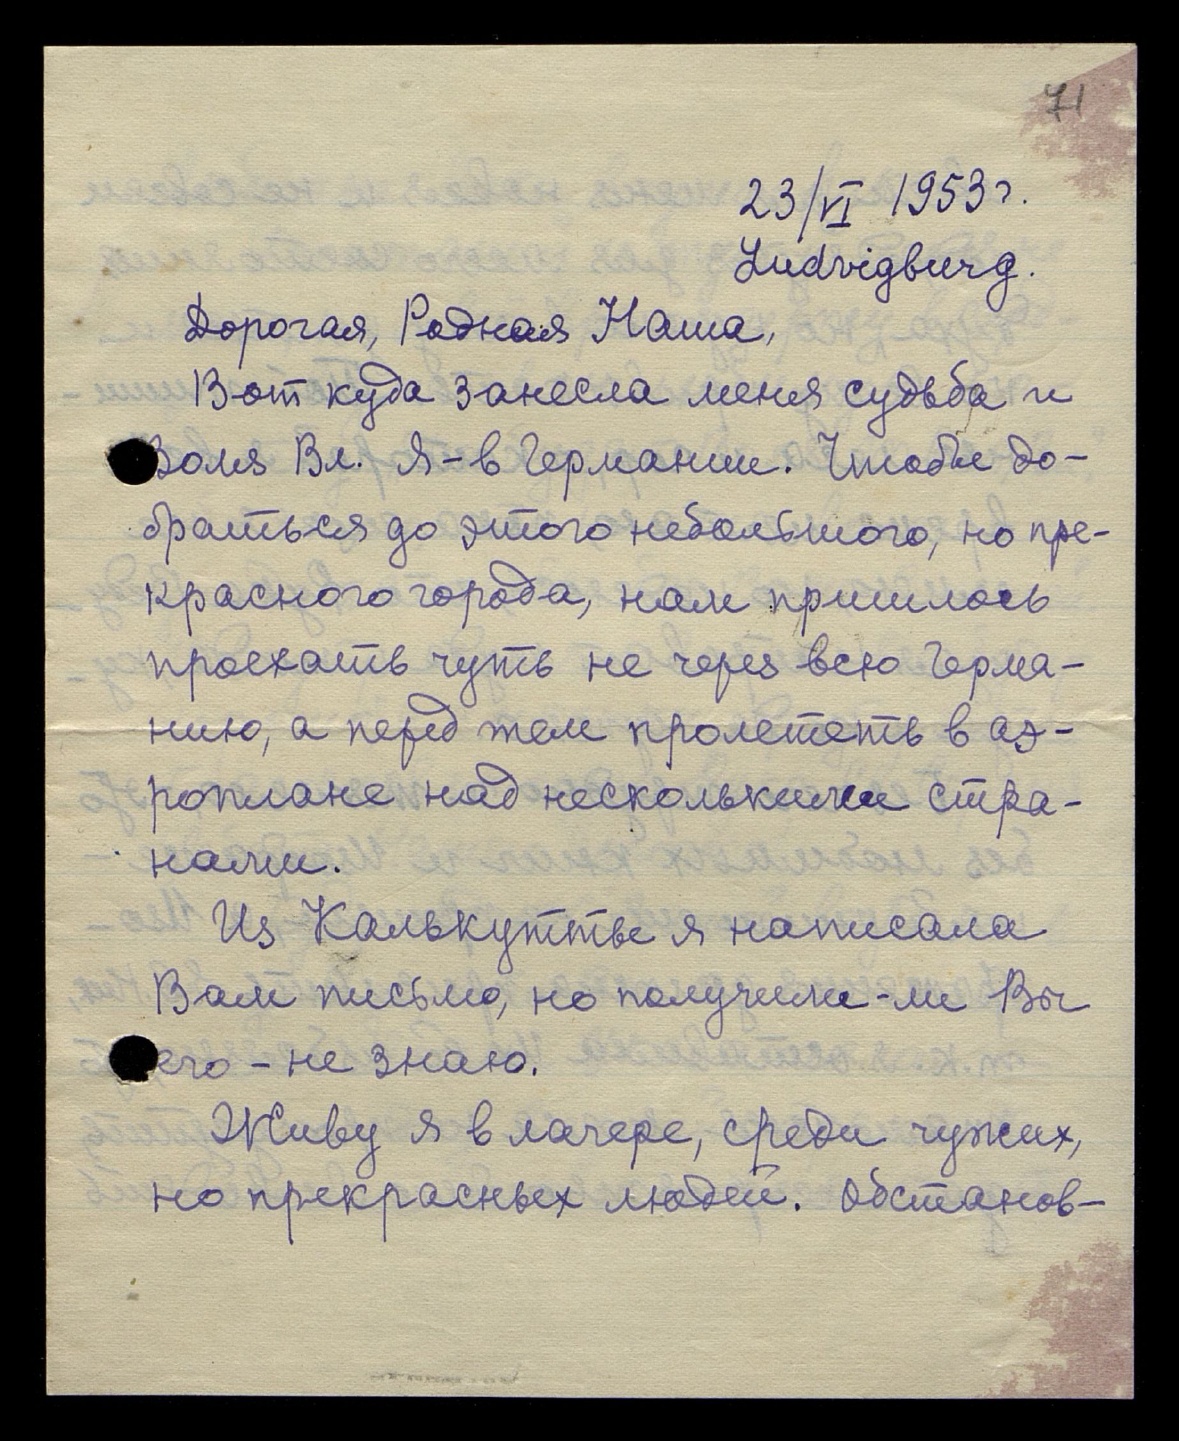 71
23/VI 1953 г.
Ludvigburg.
Дорогая, Родная Наша,
Вот куда занесла меня судьба и
Воля Вл. Я - в Германии. Чтобы до-
браться до этого небольшого, но пре-
красного города, нам пришлось
проехать чуть не через всю Герма-
нию, а перед тем пролететь в аэ-
роплане над несколькими стра-
нами.
Из Калькутты я написала
Вам письмо, но получили-ли Вы
его - не знаю.
Живу я в лагере, среди чужих,
но прекрасных людей. Обстанов-